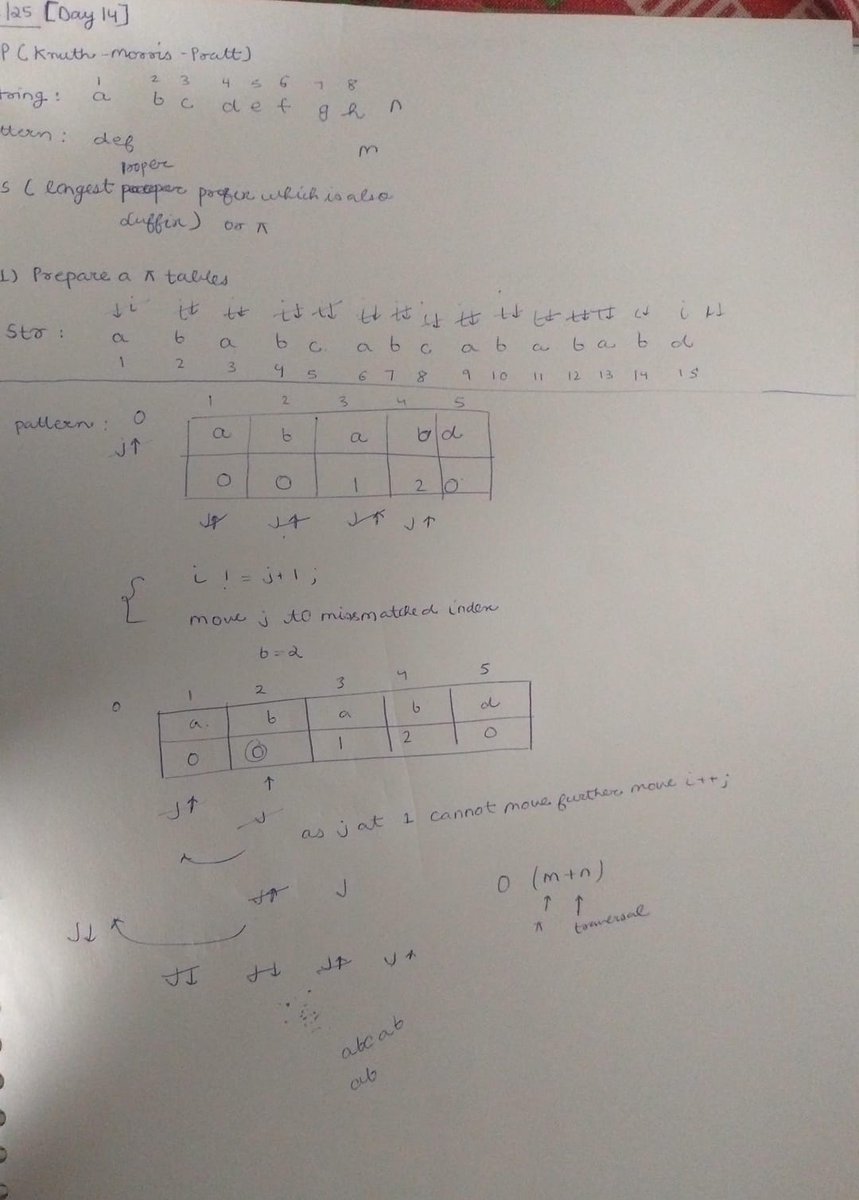 /25 [Day 14]
P ( Knuth-morris-Pratt)
1 2 3 4 5 6 7 8
tring : a b c d e f g h n
ttern : def m
proper
s ( longest prefix which is also
suffix) or π
1) Prepare a π tables
↓i i↓ i↓ i↓ i↓ i↓ i↓ i↓ i↓ i↓ i↓ i↓ i↓ i↓ i ↓↓
Str : a b a b c a b c a b a b a b d
1 2 3 4 5 6 7 8 9 10 11 12 13 14 15
1 2 3 4 5
pattern : 0 a b a b d
j↑ 0 0 1 2 0
j↑ j↑ j↑ j↑
{ i != j+1 ;
move j to missmatched index
b=2
0 1 2 3 4 5
a b a b d
0 0 1 2 0
j↑ ↑
j as j at 1 cannot move further move i++;
j↑ j O (m+n)
↑ ↑
π traversal
j↓
j↓ j↓ j↑ j↑
abcab
ab